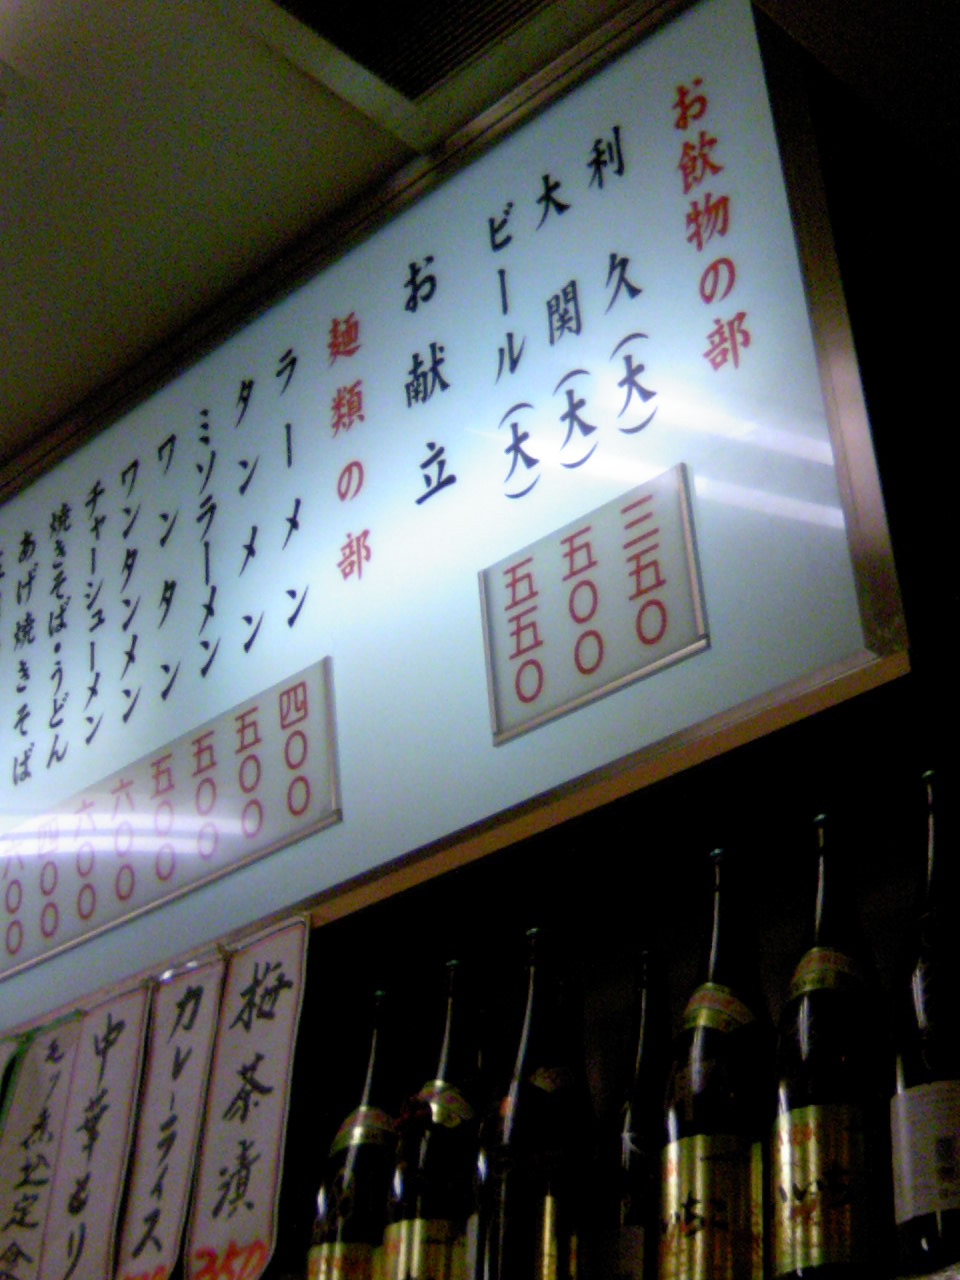 お飲物の部
利久(大)
三五〇
大関(大)
五〇〇
ビール(大)
五五〇
お献立
麺類の部
ラーメン
四〇〇
タンメン
五〇〇
ミソラーメン
五〇〇
ワンタン
五〇〇
ワンタンメン
六〇〇
チャーシューメン
六〇〇
焼きそば・うどん
四〇〇
あげ焼きそば
六〇〇
梅茶漬
350
カレーライス
中華もり
モツ煮込定食
いいちこ